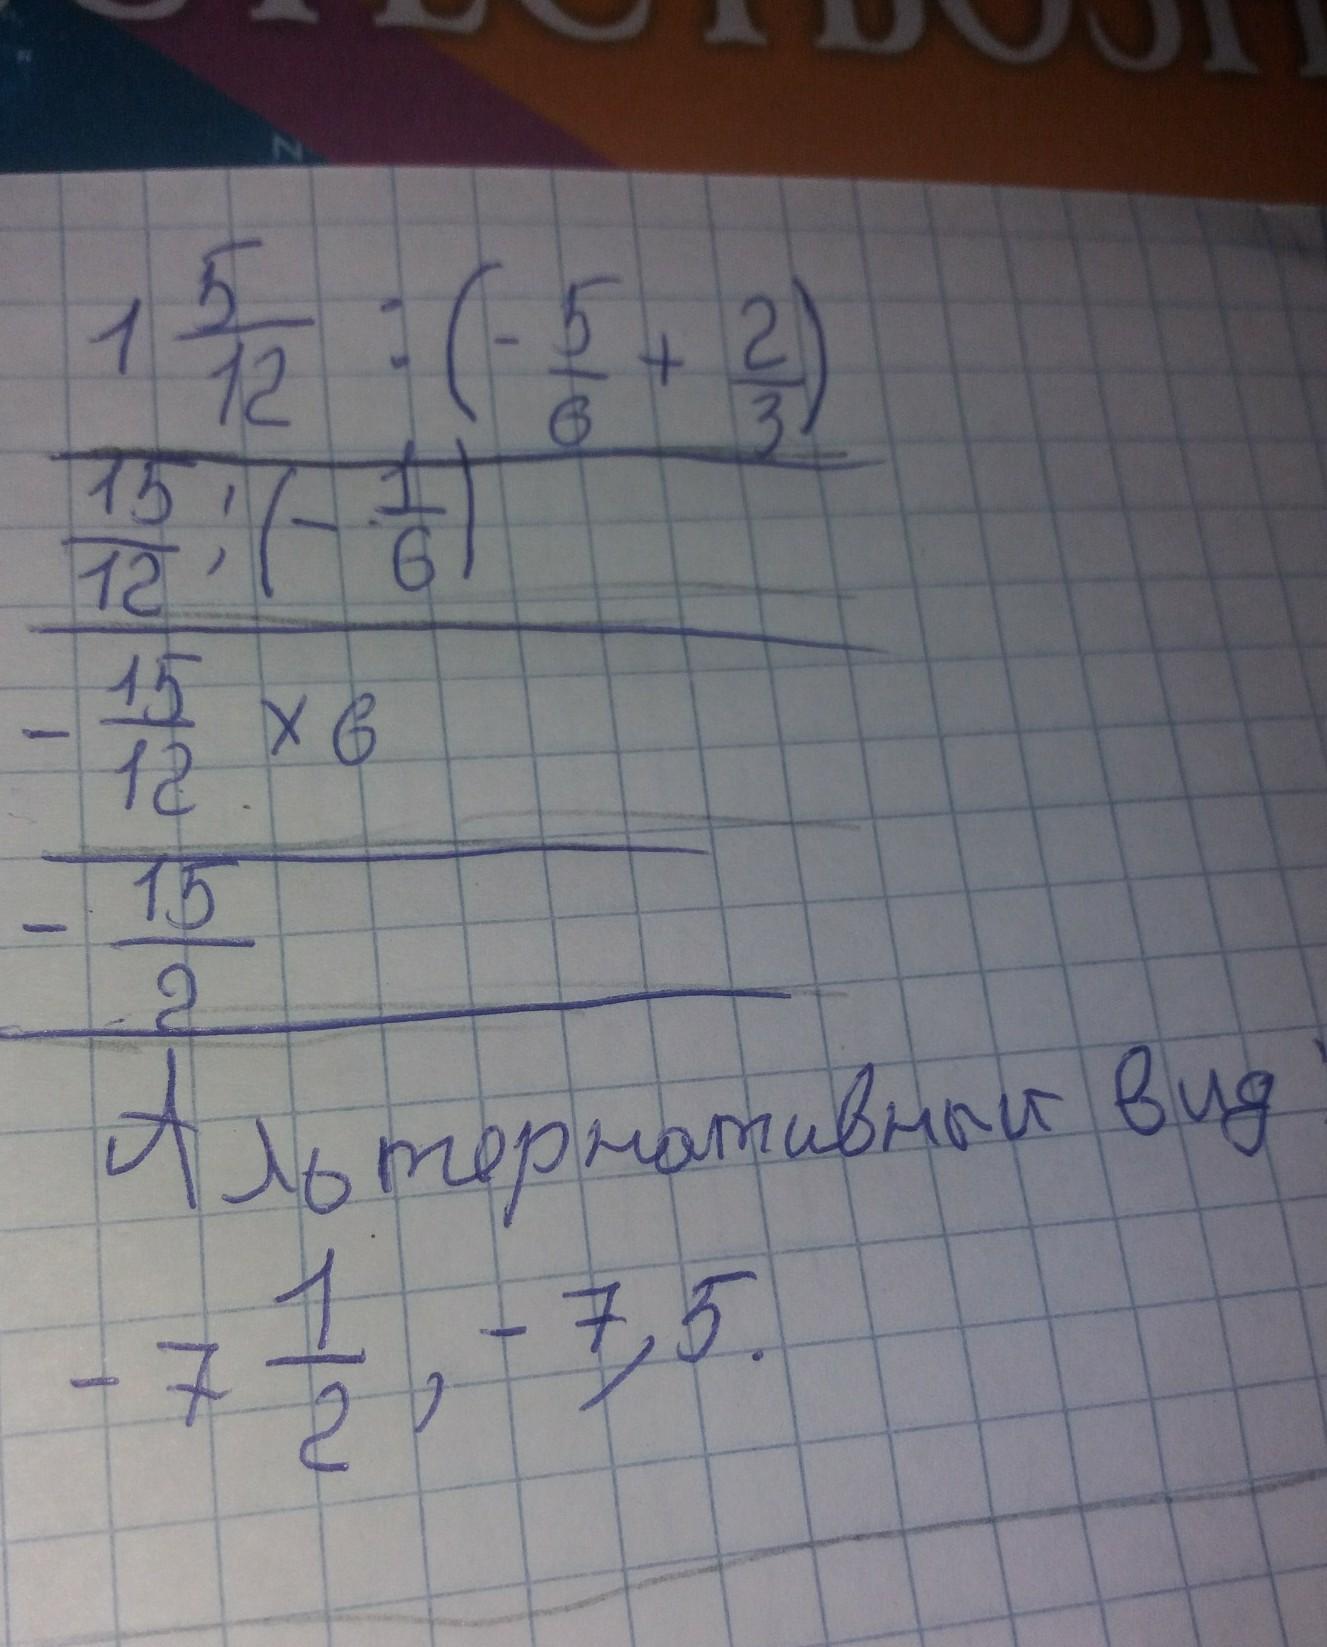 N
1 5/12 : (- 5/6 + 2/3)
15/12 : (- 1/6)
- 15/12 × 6
- 15/2
Альтернативный вид:
- 7 1/2, - 7,5.